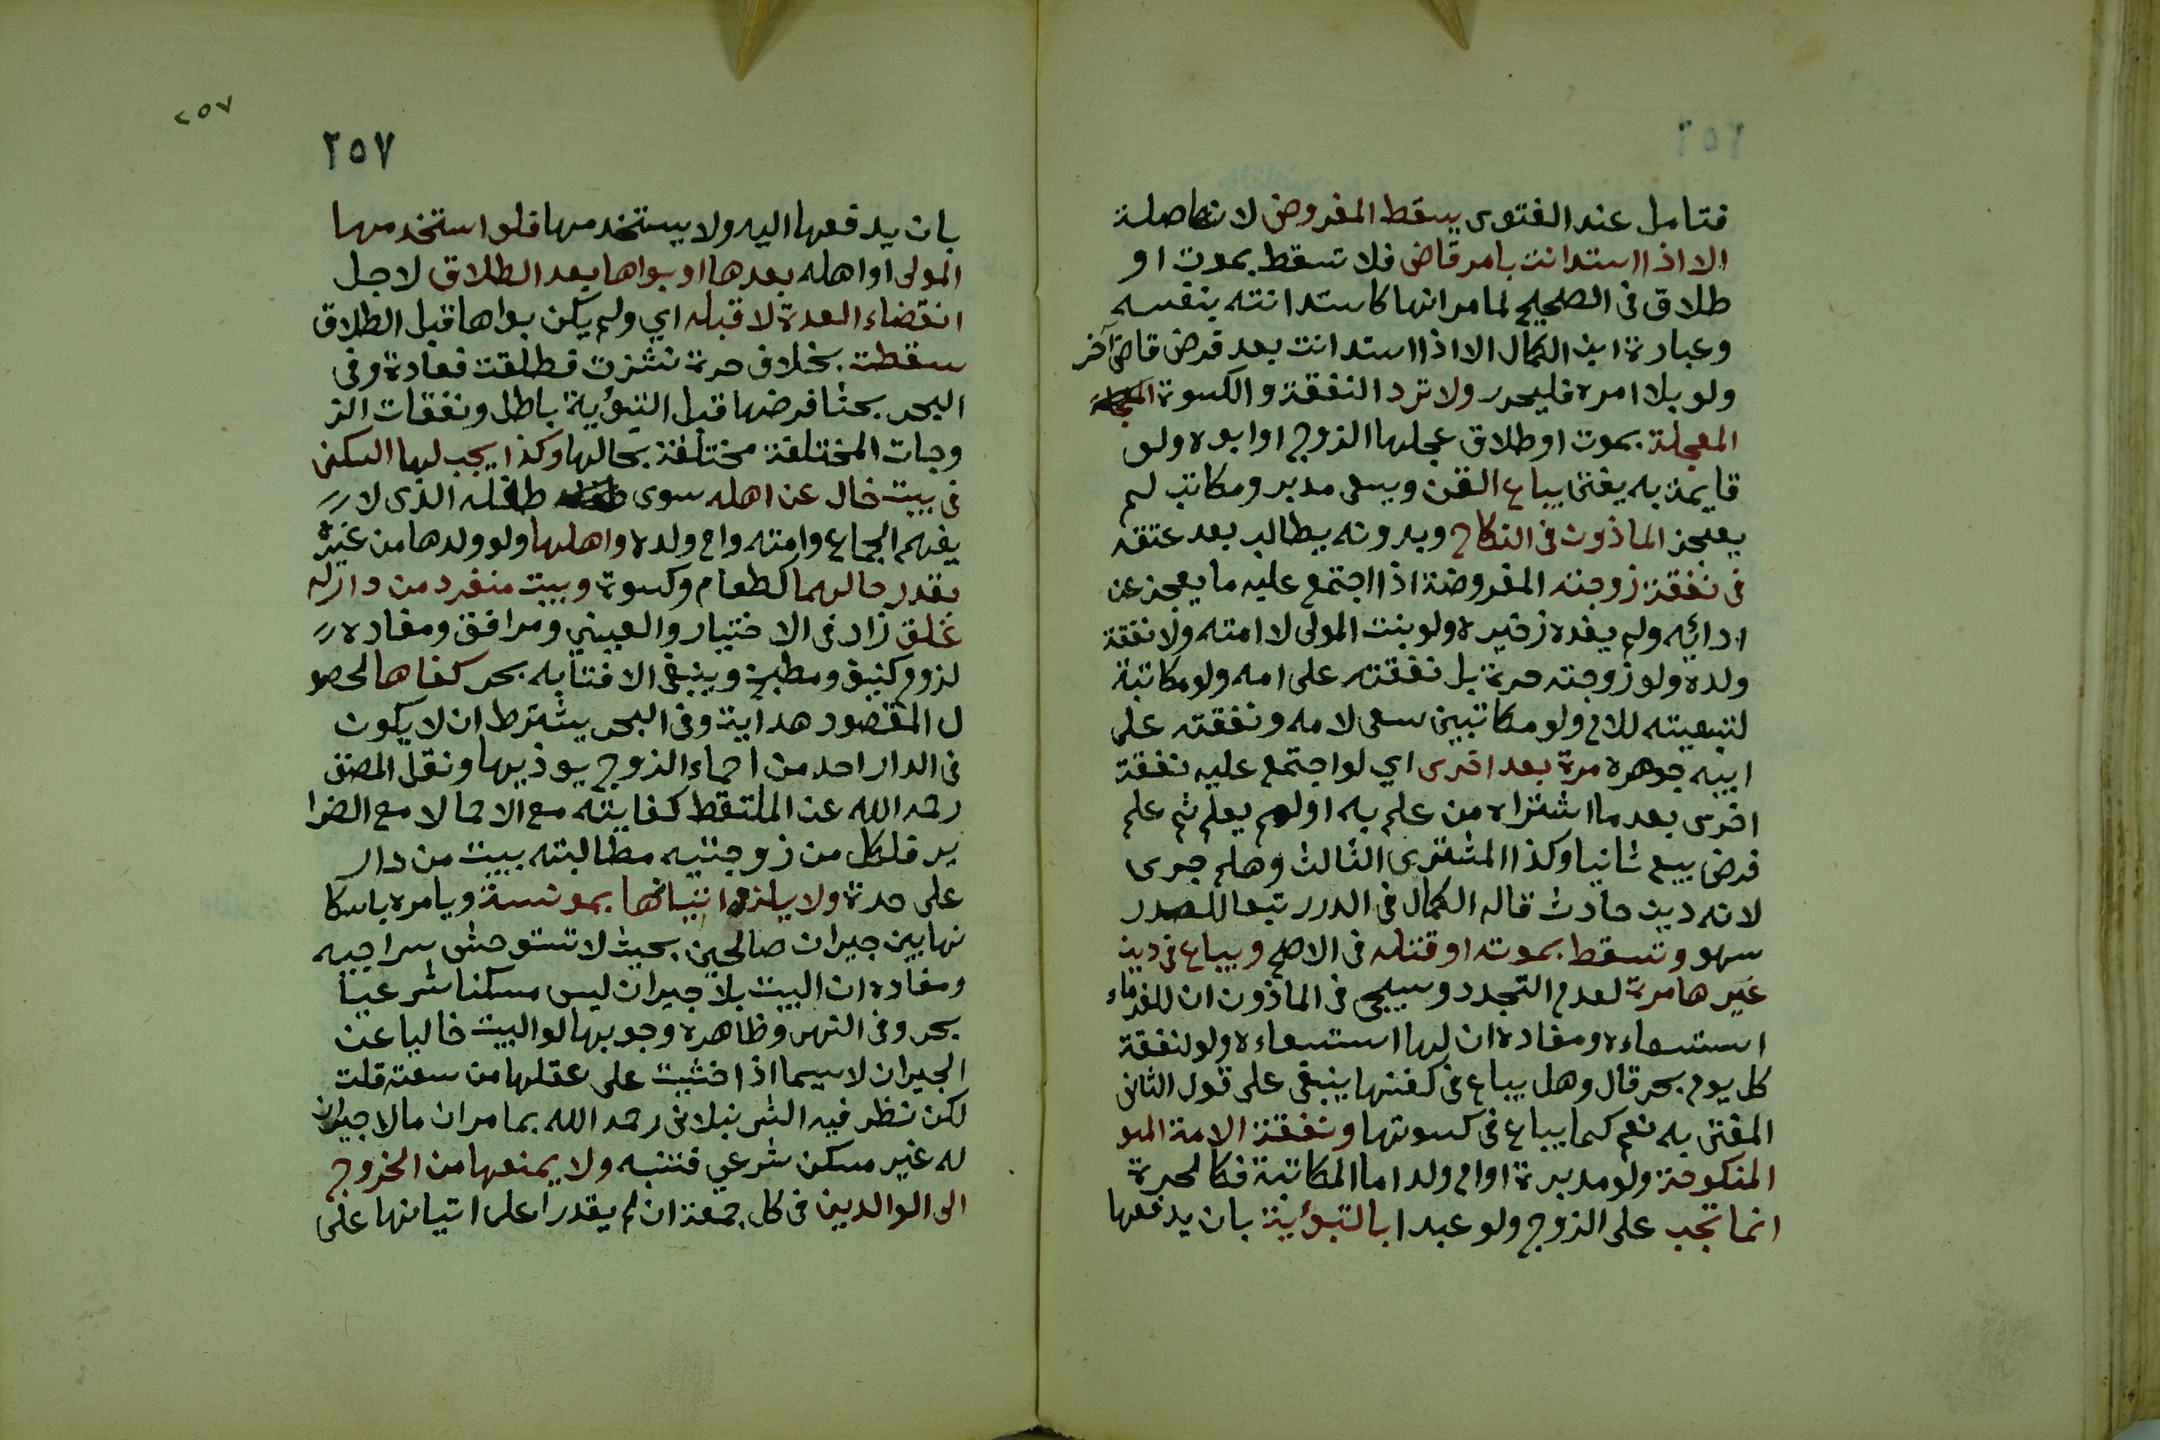 فتامل عند الفتوى يسقط المفروض لانها صلة
الا اذا استدانت بامر قاض فلا تسقط بموت او
طلاق فى الصحيح لما مر انها كاستدانته بنفسه
وعبارة ابن الكمال الا اذا استدانت بعد فرض قاض آخر
ولو بلا امره فليحرر ولا ترد النفقة والكسوة
المعجلة بموت او طلاق عجلها الزوج او ابوه ولو
قايمة به يفتى يباع القن ويسعى مدبر ومكاتب لم
يعجز الماذون فى النكاح وبدونه يطالب بعد عتقه
فى نفقة زوجته المفروضة اذا اجتمع عليه ما يعجز عن
ادائه ولم يفده زخيرة ولو بنت المولى لا امته ولا نفقة
ولده ولو زوجته حرة بل نفقته على امه ولو مكاتبة
لتبعيته للام ولو مكاتبين سعى لامه ونفقته على
ابيه جوهره مرة بعد اخرى اي لو اجتمع عليه نفقة
اخرى بعد ما اشتراه من علم به او لم يعلم ثم علم
فرض بيع ثانيا وكذا المشترى الثالث وهلم جرى
لانه دين حادث قاله الكمال فى الدرر تبعا للصدر
سهو وتسقط بموته او قتله فى الاصح ويباع فى دين
غيرها مرة لعدم التجدد وسيجى فى الماذون ان للغرماء
استسعاءه ومفاده ان لها استسعاءه ولو لنفقة
كل يوم بحر قال وهل يباع فى كفنها ينبغى على قول الثانى
المفتى به نعم كما يباع فى كسوتها ونفقة الامة المو
المنكوحة ولو مدبرة او ام ولد اما المكاتبة فكالحرة
انما تجب على الزوج ولو عبدا بالتبوئية بان يدفعها
٢٥٧
٢٥٧
بان يدفعها اليه ولا يستخدمها فلو استخدمها
المولى او اهله بعدها او بواها بعد الطلاق لاجل
انقضاء العدة لا قبله اي ولم يكن بواها قبل الطلاق
سقطت بخلاف حرة نشزت فطلقت فعادة وفى
البحر بحثا فرضها قبل التبوئية باطل ونفقات الز
وجات المختلفة مختلفة بحالها وكذا يجب لها السكنى
فى بيت خال عن اهله سوى طفله الذى لا
يفهم الجماع وامته وام ولده واهلها ولو ولدها من غيره
بقدر حالهما كطعام وكسوة وبيت منفرد من دار له
غلق زاد فى الاختيار والعينى ومرافق ومفاده
لزوم كنيف ومطبخ وينبغى الافتا به بحر كفاها لحصو
ل المقصود هداية وفى البحر يشترط ان لا يكون
فى الدار احد من احماء الزوج يوذيها ونقل المصنف
رحمه الله عن الملتقط كفايته مع الاحما لا مع الضرا
ير فلكل من زوجتيه مطالبته ببيت من دار
على حدة ولا يلزم اتيانها بمونسة ويامره باسكا
نها بين جيران صالحين بحيث لا تستوحش سراجيه
ومفاده ان البيت بلا جيران ليس مسكنا شرعيا
بحر وفى النهر وظاهره وجوبها لو البيت خاليا عن
الجيران لا سيما اذا خشيت على عقلها من سعته قلت
لكن نظر فيه الشرنبلانى رحمه الله بما مر ان مالا جيران
له غير مسكن شرعي فتنبه ولا يمنعها من الخروج
الى الوالدين فى كل جمعة ان لم يقدرا على اتيانها على